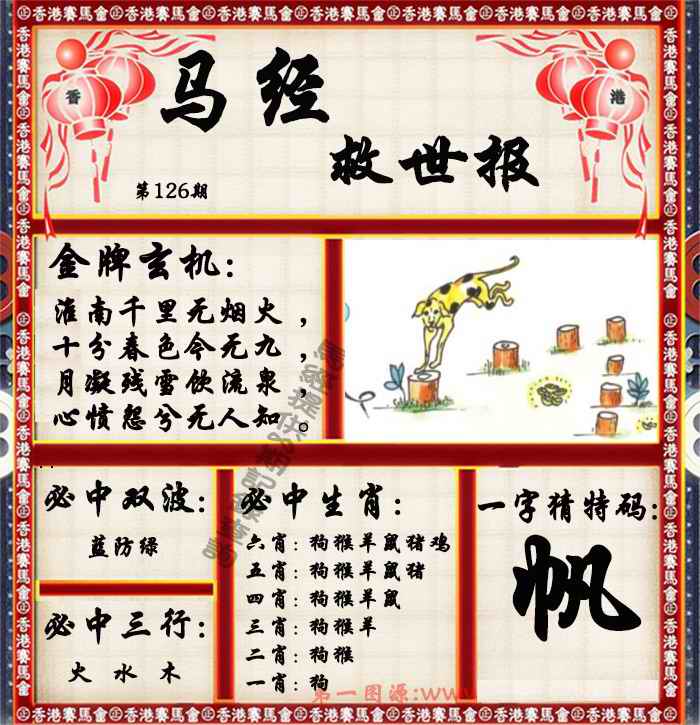 香港賽馬會
香
港
马经
救世报
第126期
金牌玄机：
淮南千里无烟火，
十分春色今无九，
月凝残雪饮流泉，
心愤怨兮无人知。
必中双波：
蓝防绿
必中三行：
火 水 木
必中生肖：
六肖：狗猴羊鼠猪鸡
五肖：狗猴羊鼠猪
四肖：狗猴羊鼠
三肖：狗猴羊
二肖：狗猴
一肖：狗
一字猜特码：
帆
第一图源:www